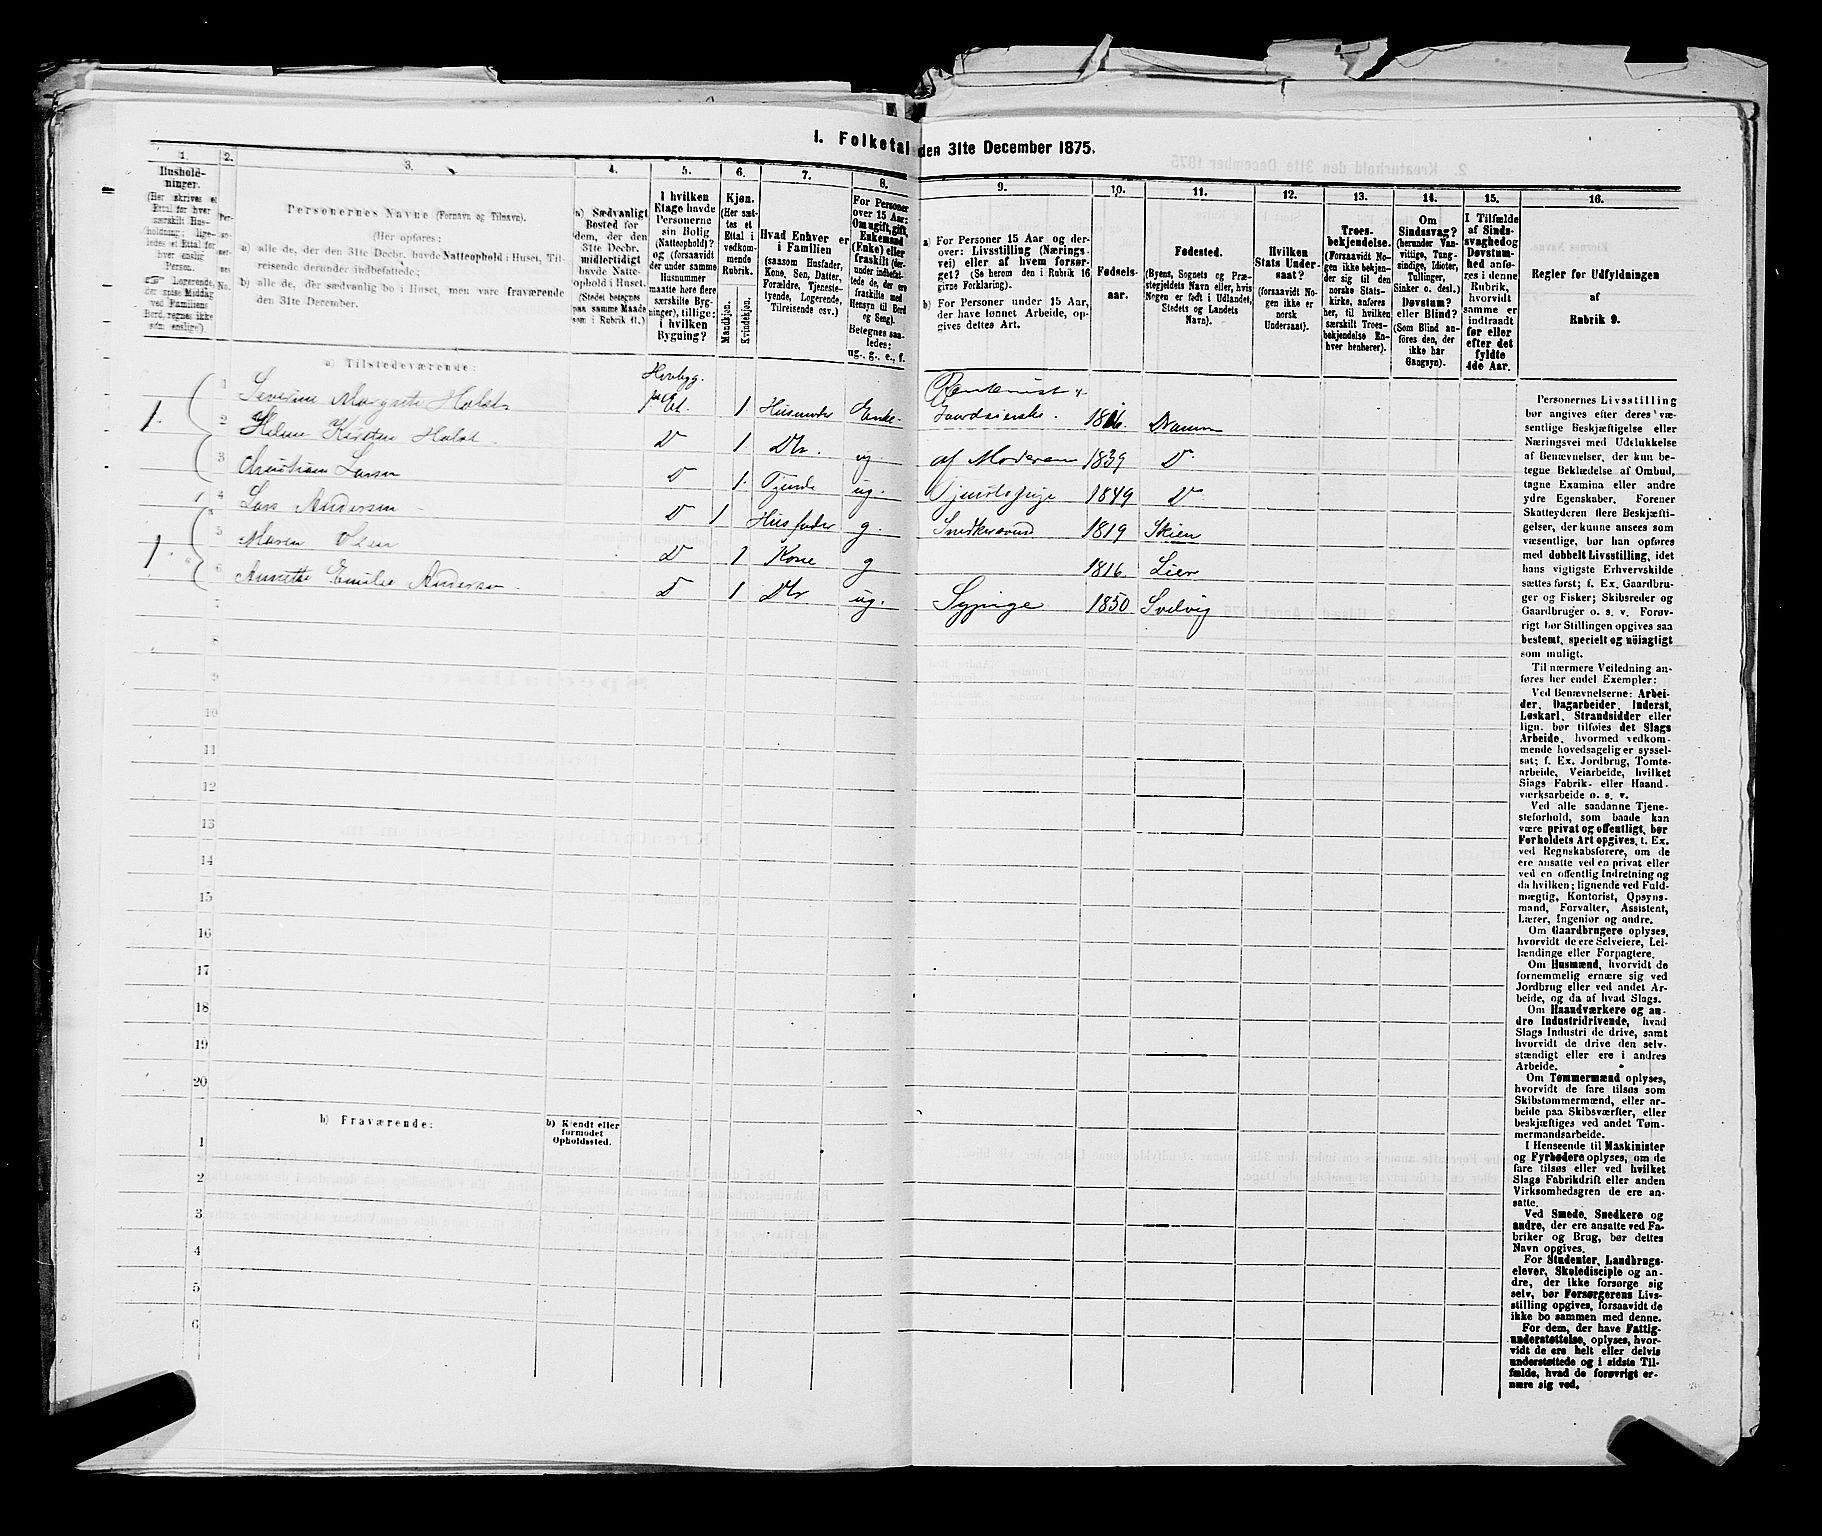 I. Folketal den 31te December 1875.
1.
Hushold-
ninger.
(Her skrives et
Ettal for hver
særskilt Hus-
holdning; lige-
ledes et Ettal for
hver enslig
Person.
Logerende,
der spise Middag
ved Familiens
Bord, regnes ikke
som enslige).
2.
3.
Personernes Navne (Fornavn og Tilnavn).
(Her opføres:
a) alle de, der den 31te Decbr. havde Natteophold i Huset, Til-
reisende derunder indbefattede;
b) alle de, der sædvanlig bo i Huset, men vare fraværende
den 31te December.
4.
a) Sædvanligt
Bosted for
dem, der den
31te Decbr.
midlertidigt
havde Natte-
ophold i Huset.
(Stedet betegnes
paa samme Maade
som i Rubrik 11.)
5.
I hvilken
Etage havde
Personerne
sin Bolig
(Natteophold)?
og (forsaavidt
der under samme
Husnummer
maatte høre flere
særskilte Byg-
ninger), tillige:
i hvilken
Bygning?
6.
Kjøn.
(Her sæt-
tes et
Ettal i
vedkom-
mende
Rubrik.
Mandkjøn.
Kvindekjøn.
7.
Hvad Enhver er
i Familien
(saasom Husfader,
Kone, Søn, Datter,
Forældre, Tjeneste-
tyende, Logerende,
Tilreisende osv.)
8.
For Personer
over 15 Aar:
Om ugift, gift,
Enkemand
(Enke) eller
fraskilt (der-
under indbefat-
tede de, der ere
fraskilte med
Hensyn til Bord
og Seng).
Betegnes saa-
ledes:
ug., g., e., f.
9.
a) For Personer 15 Aar og der-
over: Livsstilling (Nærings-
vei) eller af hvem forsør-
get? (Se herom den i Rubrik 16
givne Forklaring).
b) For Personer under 15 Aar,
der have lønnet Arbeide, op-
gives dettes Art.
10.
Fødsels-
aar.
11.
Fødested.
(Byens, Sognets og Præ-
stegjeldets Navn eller, hvis
Nogen er født i Udlandet,
Stedets og Landets
Navn).
12.
Hvilken
Stats Under-
saat?
(forsaavidt No-
gen ikke er
norsk
Undersaat).
13.
Troes-
bekjendelse.
(Forsaavidt No-
gen ikke bekjen-
der sig til den
norske Stats-
kirke, anføres
her, til hvilken
særskilt Troes-
bekjendelse En-
hver henhører).
14.
Om
Sindssvag?
(herunder Van-
vittige, Tung-
sindige, Idioter,
Tullinger,
Sinker o. desl.)
Døvstum?
eller Blind?
(Som Blind an-
føres den, der
ikke har
Gangsyn).
15.
I Tilfælde
af Sinds-
svaghed og
Døvstum-
hed anfø-
res i denne
Rubrik,
hvorvidt
samme er
indtraadt
før eller
efter det
fyldte
4de Aar.
16.
Regler for Udfyldningen
af
Rubrik 9.
a) Tilstedeværende:
1. 1 Severine Margrete Holst Hovbyg. 1ste Et. 1 Husmoder Enke Rentenist & Gaardeierske. 1816. Dramm
2 Helene Kirstin Holst D 1 Dtr. ug af Moderen 1839 D
3 Christiane Larsen D 1 Tjende ug. Tjenestepige 1849 D
1 4 Lars Andersen D 1 Husfader g. Snedkersvend 1819 Skien
5 Maren Olsen D 1 Kone g 1816 Lier
1 6 Annette Emilie Andersen D 1 Dtr ug. Sypige 1850 Svelvig
7
8
9
10
11
12
13
14
15
16
17
18
19
20
b) Fraværende:
b) Kjendt eller
formodet
Opholdssted.
1
2
3
4
5
6
Personernes Livsstilling
bør angives efter deres væ-
sentlige Beskjæftigelse eller
Næringsvei med Udelukkelse
af Benævnelser, der kun be-
tegne Beklædelse af Ombud,
tagne Examina eller andre
ydre Egenskaber. Forener
Skatteyderen flere Beskjæfti-
gelser, der kunne ansees som
væsentlige, bør han opføres
med dobbelt Livsstilling, idet
hans vigtigste Erhvervskilde
sættes først; f. Ex. Gaardbru-
ger og Fisker; Skibsreder og
Gaardbruger o. s. v. Forøv-
rigt bør Stillingen opgives saa
bestemt, specielt og nöiagtigt
som muligt.
Til nærmere Veiledning an-
føres her endel Exempler:
Ved Benævnelserne: Arbei-
der, Dagarbeider, Inderst,
Løskarl, Strandsidder eller
lign. bør tilføies det Slags
Arbeide, hvormed vedkom-
mende hovedsagelig er syssel-
sat; f. Ex. Jordbrug, Tomte-
arbeide, Veiarbeide, hvilket
Slags Fabrik- eller Haand-
værksarbeide o. s. v.
Ved alle saadanne Tjene-
steforhold, som baade kan
være privat og offentligt, bør
Forholdets Art opgives, t. Ex.
ved Regnskabsførere, om de
ere ansatte ved en privat eller
ved en offentlig Indretning og
da hvilken; lignende ved Fuld-
mægtig, Kontorist, Opsyns-
mand, Forvalter, Assistent,
Lærer, Ingeniør og andre.
Om Gaardbrugere oplyses,
hvorvidt de ere Selveiere, Lei-
lændinge eller Forpagtere.
Om Husmænd, hvorvidt de
fornemmelig ernære sig ved
Jordbrug eller ved andet Ar-
beide, og da af hvad Slags.
Om Haandværkere og an-
dre Industridrivende, hvad
Slags Industri de drive, samt
hvorvidt de drive den selv-
stændigt eller ere i andres
Arbeide.
Om Tømmermænd oplyses,
hvorvidt de fare tilsøs som
Skibstømmermænd, eller ar-
beide paa Skibsværfter, eller
beskjæftiges ved andet Tøm-
mermandsarbeide.
I Henseende til Maskinister
og Fyrbødere oplyses, om de
fare tilsøs eller ved hvilket
Slags Fabrikdrift eller anden
Virksomhedsgren de ere an-
satte.
Ved Smede, Snedkere og
andre, der ere ansatte ved Fa-
briker og Brug, bør dettes
Navn opgives.
For Studenter, Landbrugs-
elever, Skoledisciple og an-
dre, der ikke forsørge sig
selv, bør Forsørgerens Livs-
stilling opgives, forsaavidt de
ikke bo sammen med denne.
For dem, der have Fattig-
understøttelse, oplyses, hvor-
vidt de ere helt eller delvis
understøttede og i sidste Til-
fælde, hvad de forøvrigt er-
nære sig ved.